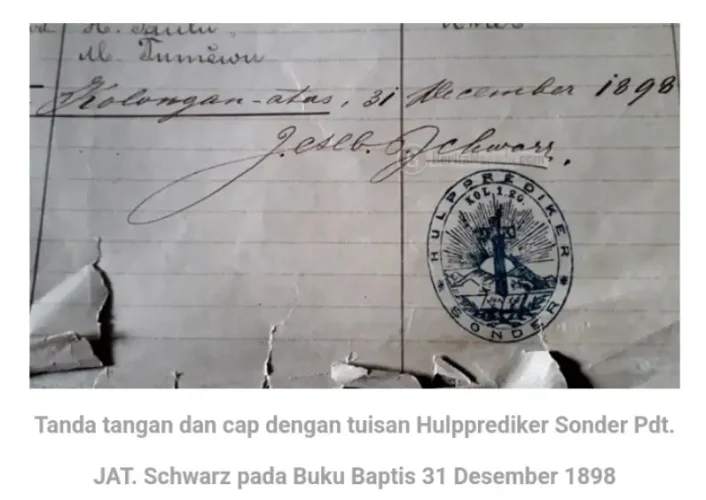 H. Santu,
M. Tumēwu
Kolongan-atas, 31 December 1898
Schwarz.
HULPPREDIKER
KOL 1.20.
SONDER
Tanda tangan dan cap dengan tuisan Hulpprediker Sonder Pdt.
JAT. Schwarz pada Buku Baptis 31 Desember 1898